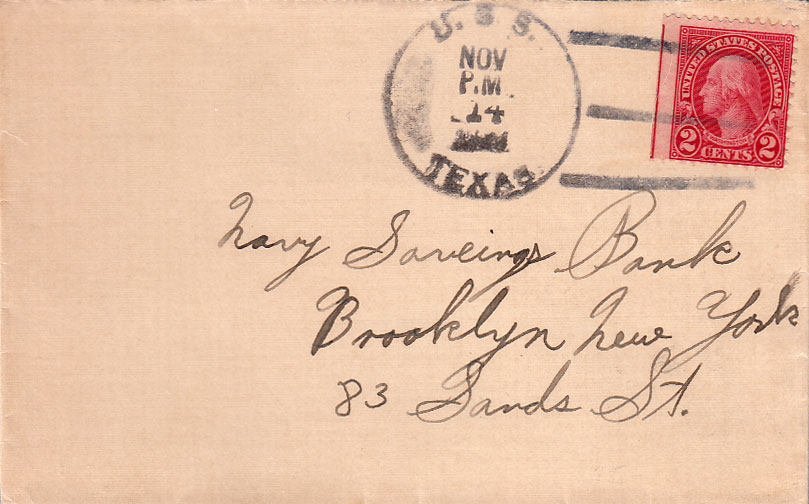 U. S. S.
NOV
P.M.
14
TEXAS.
UNITED STATES POSTAGE
2 CENTS 2
Navy Saveings Bank
Brooklyn New York
83 Sands St.